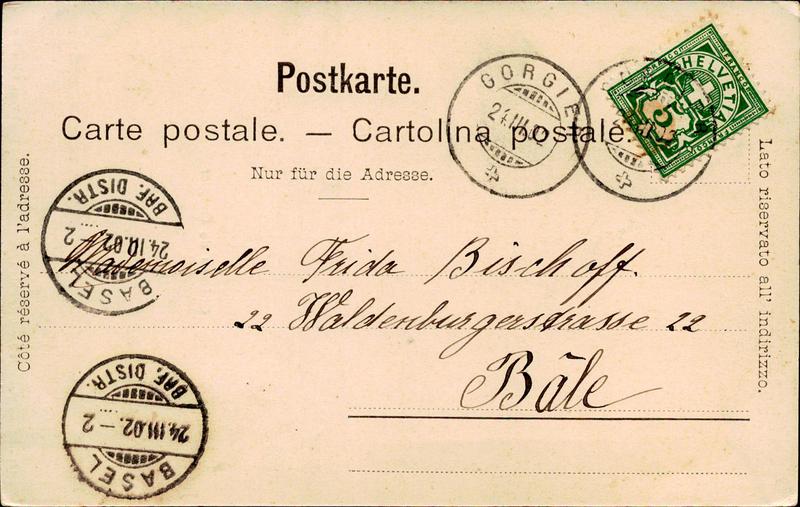 Postkarte.
Carte postale. — Cartolina postale.
Nur für die Adresse.
Côté réservé à l'adresse.
Lato riservato all' indirizzo.
GORGIER
24.III.02
HELVETIA
FRANCO
5
BASEL
24.III.02.
2
BRF. DISTR.
Mademoiselle Frida Bischoff.
22 Waldenburgerstrasse 22
Bâle
BASEL
24.III.02.–2
BRF. DISTR.